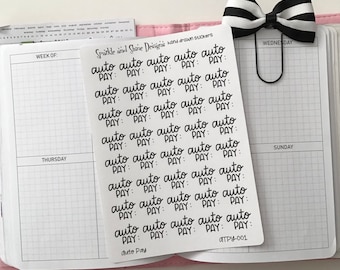 WEEK OF:
WEDNESDAY
THURSDAY
SUNDAY
Sparkle and Shine Designs hand drawn stickers
auto auto auto auto auto
PAY: PAY: PAY: PAY: PAY:
auto auto auto auto auto
PAY: PAY: PAY: PAY: PAY:
auto auto auto auto auto
PAY: PAY: PAY: PAY: PAY:
auto auto auto auto auto
PAY: PAY: PAY: PAY: PAY:
auto auto auto auto auto
PAY: PAY: PAY: PAY: PAY:
auto auto auto auto auto
PAY: PAY: PAY: PAY: PAY:
auto auto auto auto auto
PAY: PAY: PAY: PAY: PAY:
auto auto auto auto auto
PAY: PAY: PAY: PAY: PAY:
Auto Pay
ATPY-001